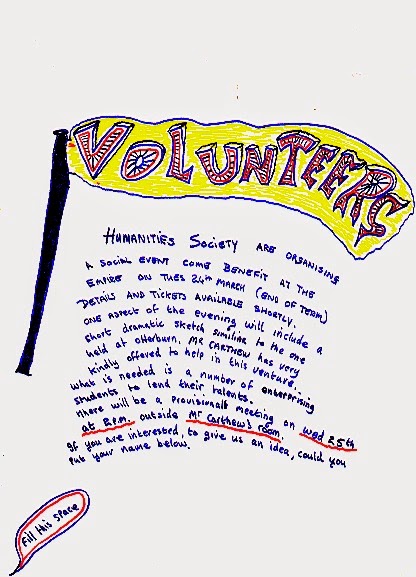 VOLUNTEERS
HUMANITIES SOCIETY ARE ORGANISING
A SOCIAL EVENT COME BENEFIT AT THE
EMPIRE ON TUES 24th MARCH (END OF TERM)
DETAILS AND TICKETS AVAILABLE SHORTLY.
ONE ASPECT OF THE evening will include a
short dramatic sketch similiar to the one
held at Otterburn. MR CARTHEW has very
kindly offered to help in this venture.
What is needed is a number of enterprising
students to lend their talents.
There will be a provisional meeting on Wed 25th
at 2.p.m. outside Mr Carthew's room.
If you are interested, to give us an idea, could you
put your name below.
Fill this space